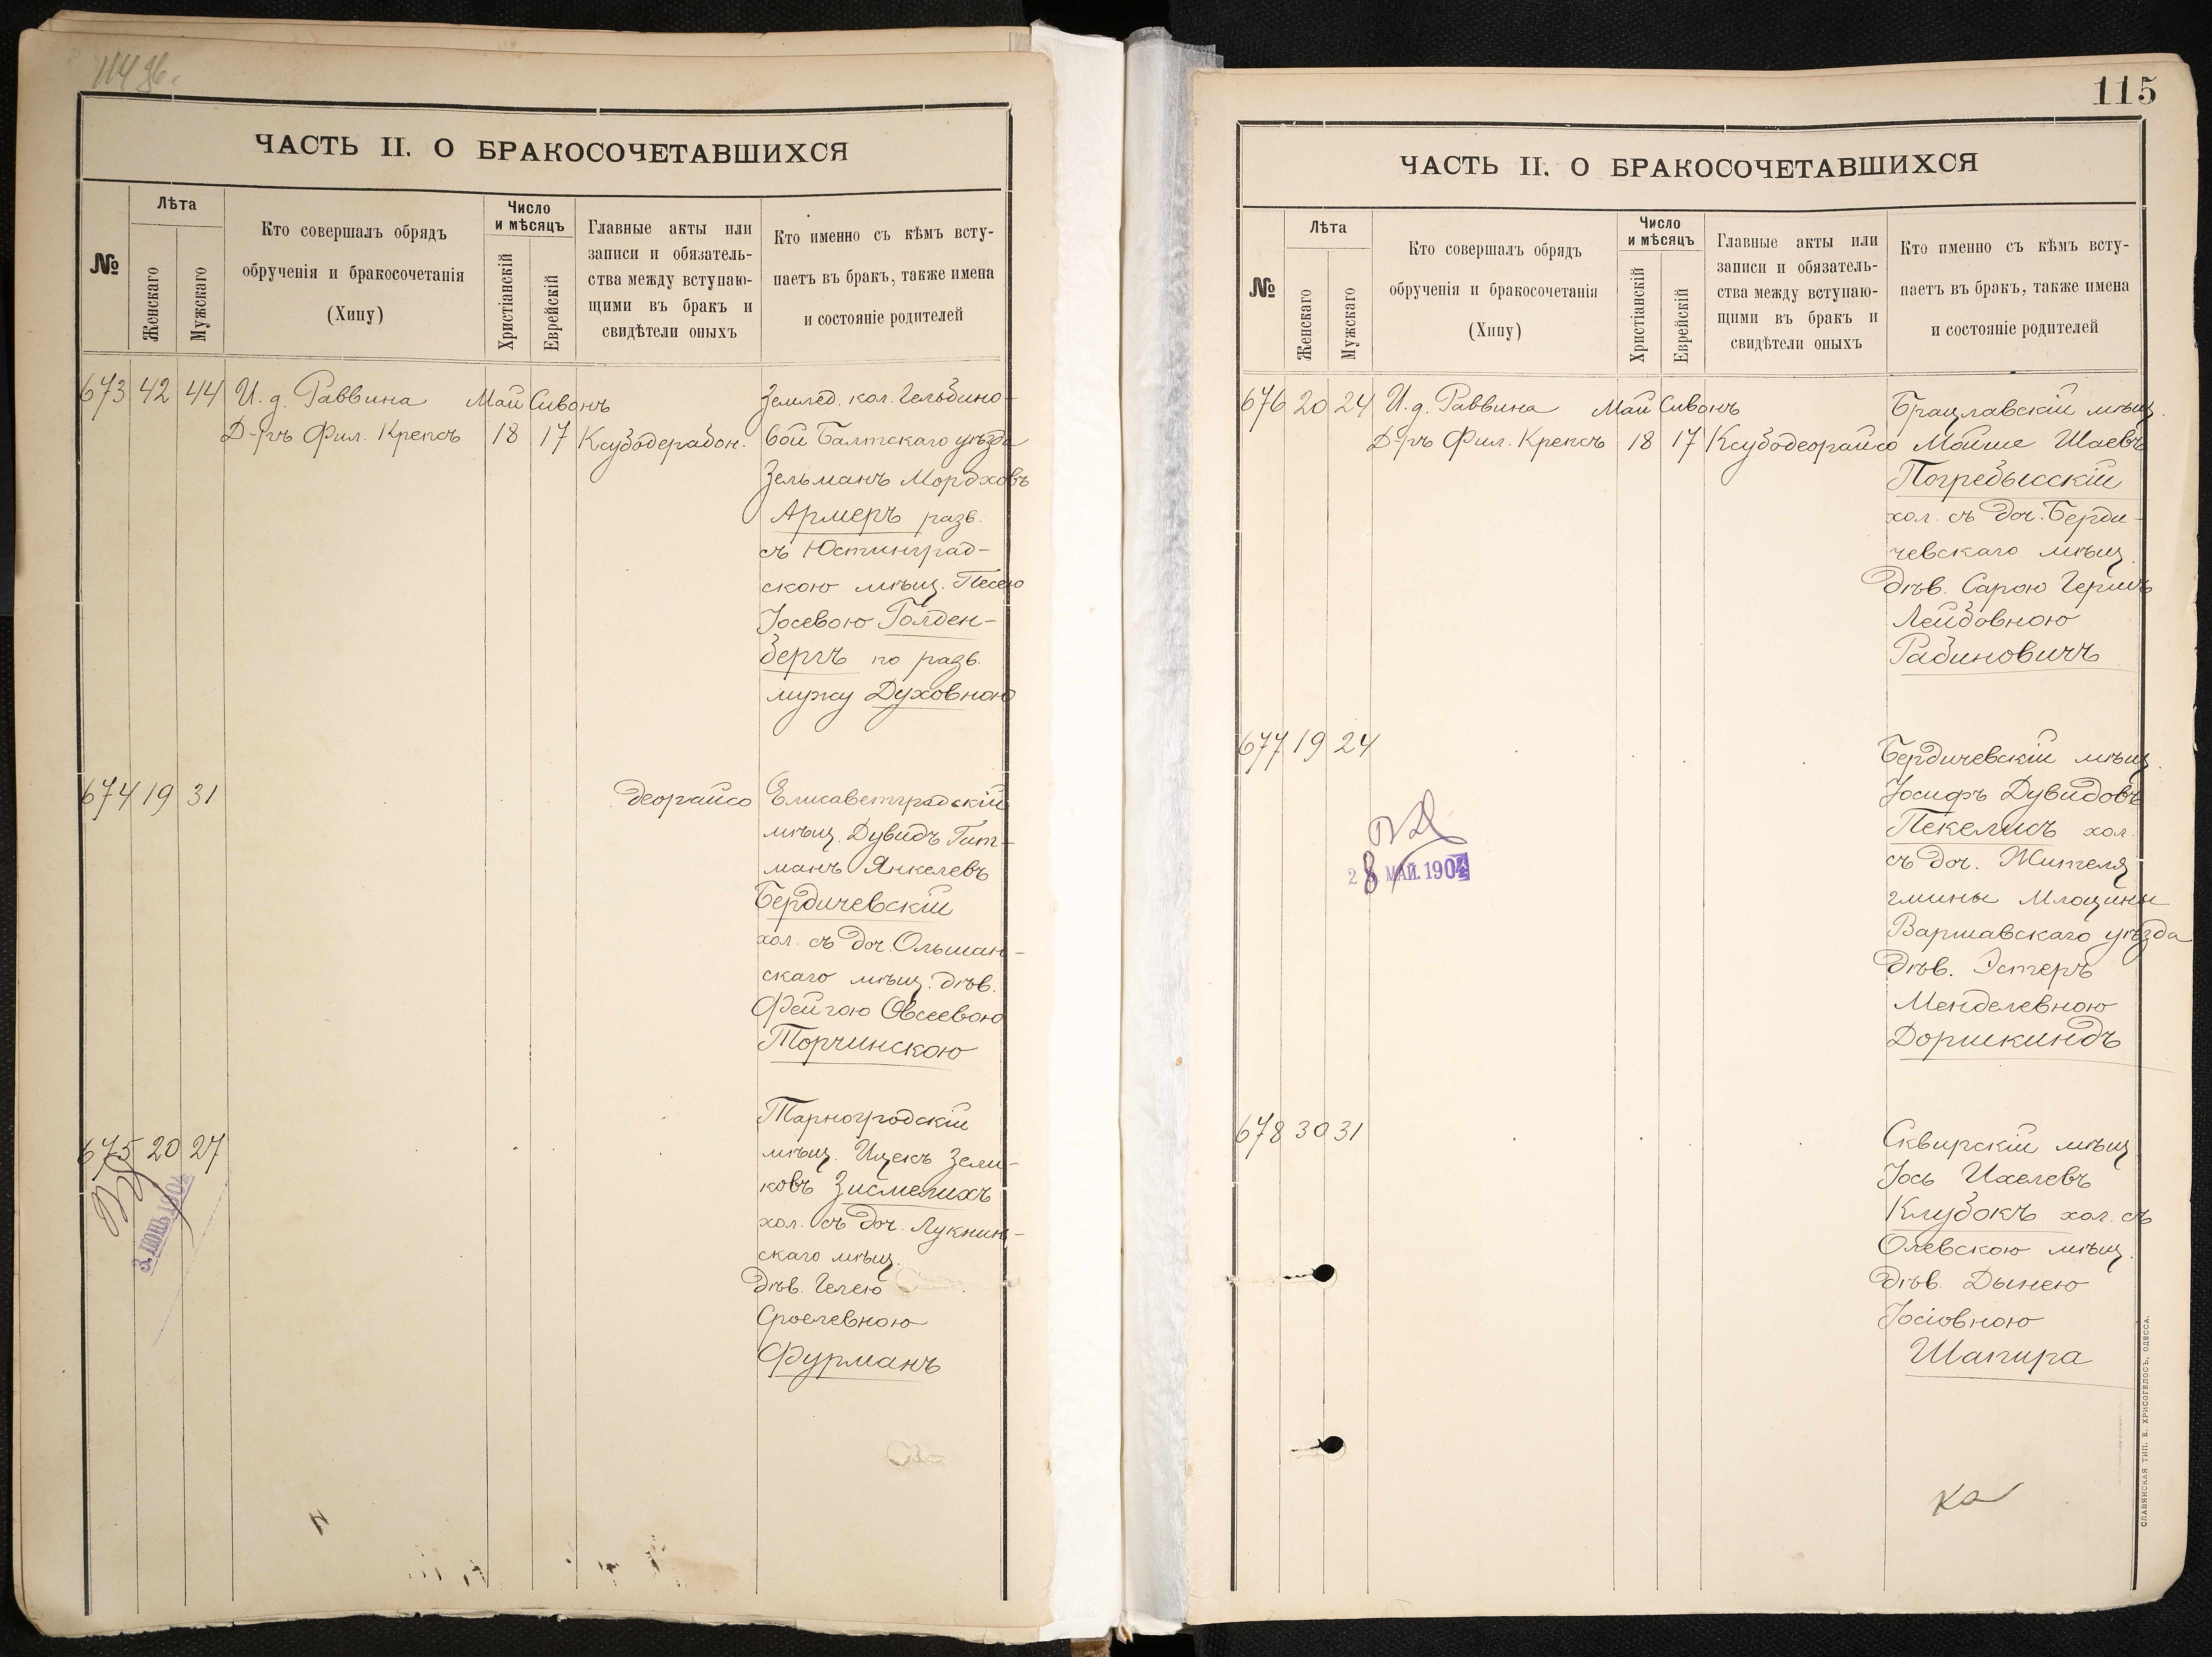 114 об.
ЧАСТЬ II. О БРАКОСОЧЕТАВШИХСЯ
№
Лѣта
Женскаго
Мужскаго
Кто совершалъ обрядъ
обрученія и бракосочетанія
(Хупу)
Число
и мѣсяцъ
Христіанскій
Еврейскій
Главные акты или
записи и обязатель-
ства между вступаю-
щими въ бракъ и
свидѣтели оныхъ
Кто именно съ кѣмъ всту-
паетъ въ бракъ, также имена
и состояніе родителей
673 42 44 И. д. Раввина Май Сивонъ
Д-ръ Фил. Крепсъ 18 17 Ксубодерабон.
Землед. кол. Гельбино-
вой Балтскаго уѣзда
Зельманъ Мордховъ
Армеръ разв.
съ Юстинград-
скою мѣщ. Песею
Іосевою Голден-
бергъ по разв.
мужу Духовною
674 19 31 деорайсо
Елисаветградскій
мѣщ. Дувидъ Гит-
манъ Янкелевъ
Бердичевскій
хол. съ доч. Ольшан-
скаго мѣщ. дѣв.
Фейгою Овсеевою
Торчинскою
675 20 27
3 ІЮНЬ 1904
Тарногродскій
мѣщ. Ицекъ Зели-
ковъ Зисмелихъ
хол. съ доч. Лукнин-
скаго мѣщ.
дѣв. Гелею
Сроелевною
Фурманъ
115
ЧАСТЬ II. О БРАКОСОЧЕТАВШИХСЯ
№
Лѣта
Женскаго
Мужскаго
Кто совершалъ обрядъ
обрученія и бракосочетанія
(Хупу)
Число
и мѣсяцъ
Христіанскій
Еврейскій
Главные акты или
записи и обязатель-
ства между вступаю-
щими въ бракъ и
свидѣтели оныхъ
Кто именно съ кѣмъ всту-
паетъ въ бракъ, также имена
и состояніе родителей
676 20 24 И. д. Раввина Май Сивонъ
Д-ръ Фил. Крепсъ 18 17 Ксубодеорайсо
Брацлавскій мѣщ.
Мойше Шаевъ
Погребысскій
хол. съ доч. Берди-
чевскаго мѣщ.
дѣв. Сарою Гершъ
Лейбовною
Рабиновичъ
677 19 24
28 МАЙ. 1904
Бердичевскій мѣщ.
Іосифъ Дувидовъ
Пекелисъ хол.
съ доч. Жителя
гмины Млоцины
Варшавскаго уѣзда
дѣв. Эстеръ
Менделевною
Дорискиндъ
678 30 31
Сквирскій мѣщ
Іось Ихелевъ
Клубокъ хол. съ
Олевскою мѣщ.
дѣв. Дынею
Іосіовною
Шапира
СЛАВЯНСКАЯ ТИП. Е. ХРИСОГЕЛОСЪ, ОДЕССА.